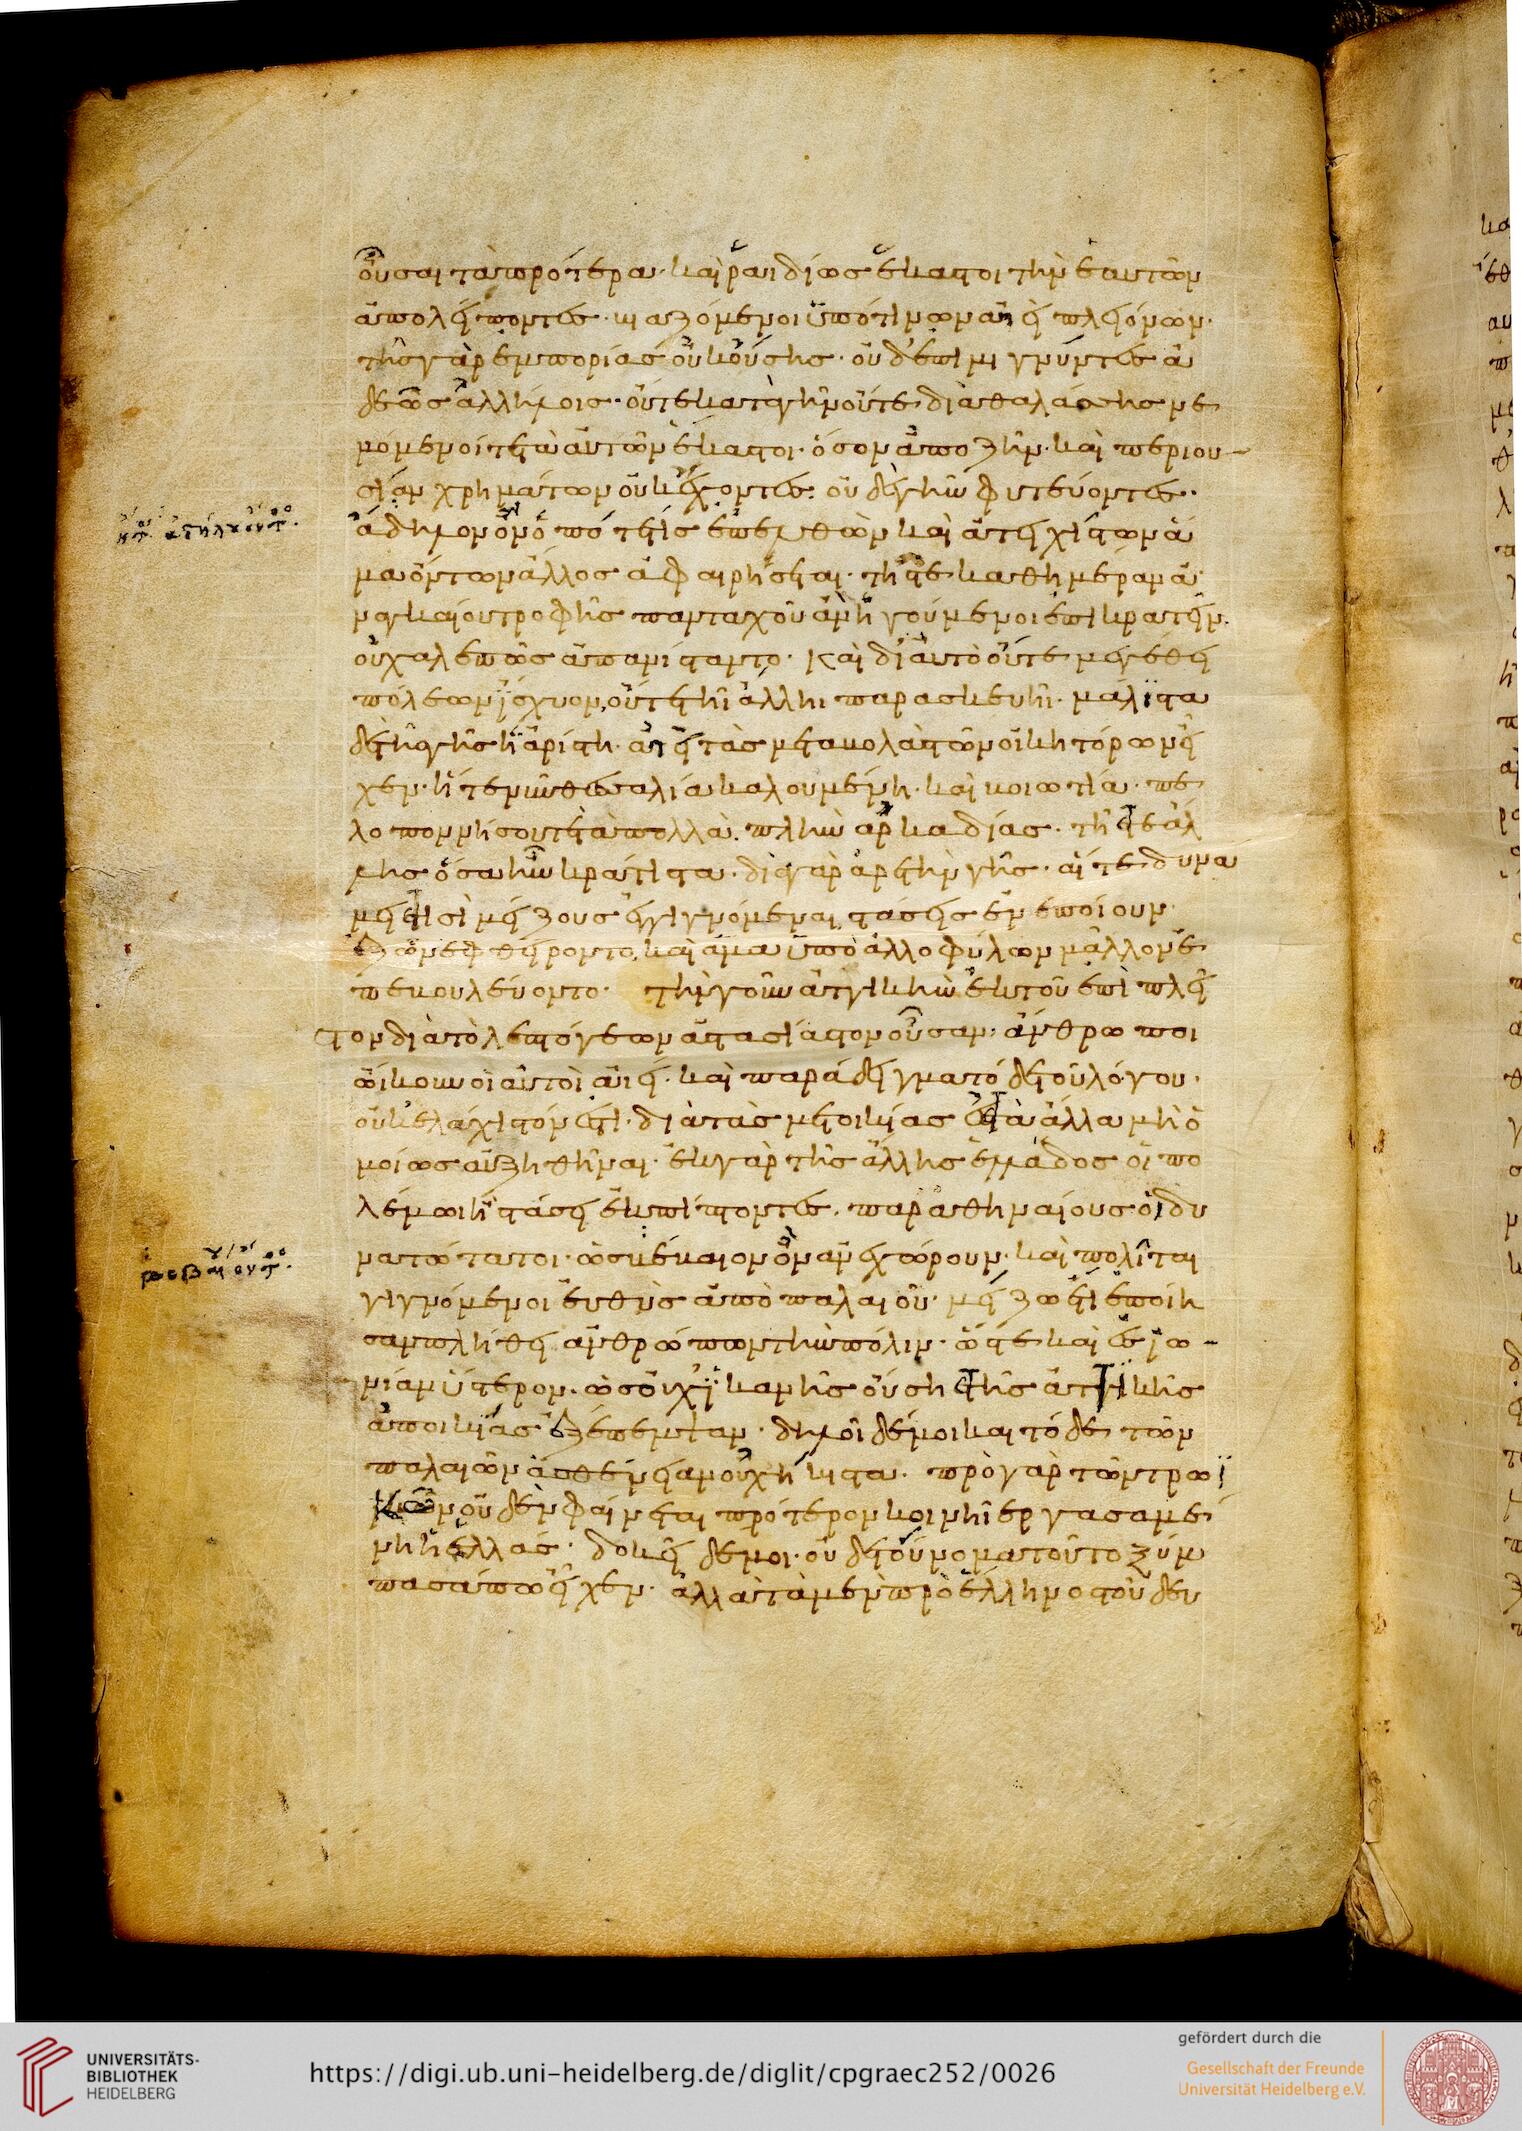 οὖσαι τὰ πρότερα· καὶ ῥαιδίως ἕκαστοι τὴν ἑαυτῶν
ἀπολείποντες· βιαζόμενοι ὑπό τινων αἰεὶ πλειόνων·
τῆς γὰρ ἐμπορίας οὐκ οὔσης· οὐδ' ἐπιμιγνύντες ἀ
δεῶς ἀλλήλοις· οὔτε κατὰ γῆν οὔτε διὰ θαλάσσης νε
μόμενοί τε τὰ αὑτῶν ἕκαστοι· ὅσον ἀποζῆν· καὶ περιου
σίαν χρημάτων οὐκ ἔχοντες· οὐδὲ γῆν φυτεύοντες·
ἄδηλον ὂν ὁπότε τις ἐπελθὼν καὶ ἀτειχίστων ἅ
μα ὄντων ἄλλος ἀφαιρήσεται· τῆς τε καθ' ἡμέραν ἀ
ναγκαίου τροφῆς πανταχοῦ ἂν ἡγούμενοι ἐπικρατεῖν·
οὐ χαλεπῶς ἀπανίσταντο· καὶ δι' αὐτὸ οὔτε μεγέθει
πόλεων ἴσχυον, οὔτε τῆι ἄλληι παρασκευῆι· μάλιστα
δὲ τῆς γῆς ἡ ἀρίστη· αἰεὶ τὰς μεταβολὰς τῶν οἰκητόρων εἶ
χεν· ἥ τε νῦν θεσσαλία καλουμένη· καὶ βοιωτία· πε
λοποννήσου τε τὰ πολλὰ· πλὴν ἀρκαδίας· τῆς τε ἄλ
λης ὅσα ἦν κράτιστα· διὰ γὰρ ἀρετὴν γῆς· αἵ τε δυνά
μεις τισὶ μείζους ἐγγιγνόμεναι στάσεις ἐνεποίουν·
ἐξ ὧν ἐφθείροντο, καὶ ἅμα ὑπὸ ἀλλοφύλων μᾶλλον ἐ
πεβουλεύοντο· τὴν γοῦν ἀττικὴν ἐκ τοῦ ἐπὶ πλεῖ
στον διὰ τὸ λεπτόγεων ἀστασίαστον οὖσαν· ἄνθρωποι
ὤικουν οἱ αὐτοὶ αἰεί· καὶ παράδειγμα τόδε τοῦ λόγου·
οὐκ ἐλάχιστόν ἐστι· διὰ τὰς μετοικίας ἐς τὰ ἄλλα μὴ ὁ
μοίως αὐξηθῆναι· ἐκ γὰρ τῆς ἄλλης ἑλλάδος οἱ πο
λέμωι ἢ στάσει ἐκπίπτοντες· παρ' ἀθηναίους οἱ δυ
νατώτατοι· ὡς βέβαιον ὂν ἀνεχώρουν· καὶ πολῖται
γιγνόμενοι εὐθὺς ἀπὸ παλαιοῦ· μείζω ἔτι ἐποίη
σαν πλήθει ἀνθρώπων τὴν πόλιν· ὥστε καὶ ἐς ἰω
νίαν ὕστερον· ὡς οὐχ ἱκανῆς οὔσης τῆς ἀττικῆς
ἀποικίας ἐξέπεμψαν· δηλοῖ δέ μοι καὶ τόδε τῶν
παλαιῶν ἀσθένειαν οὐχ ἥκιστα· πρὸ γὰρ τῶν τρωϊ
κῶν οὐδὲν φαίνεται πρότερον κοινῆι ἐργασαμέ
νη ἡ ἑλλάς· δοκεῖ δέ μοι· οὐδὲ τοὔνομα τοῦτο ξύμ
πασά πω εἶχεν· ἀλλὰ τὰ μὲν πρὸ ἕλληνος τοῦ δευ
UNIVERSITÄTS-
BIBLIOTHEK
HEIDELBERG
https://digi.ub.uni-heidelberg.de/diglit/cpgraec252/0026
gefördert durch die
Gesellschaft der Freunde
Universität Heidelberg e.V.